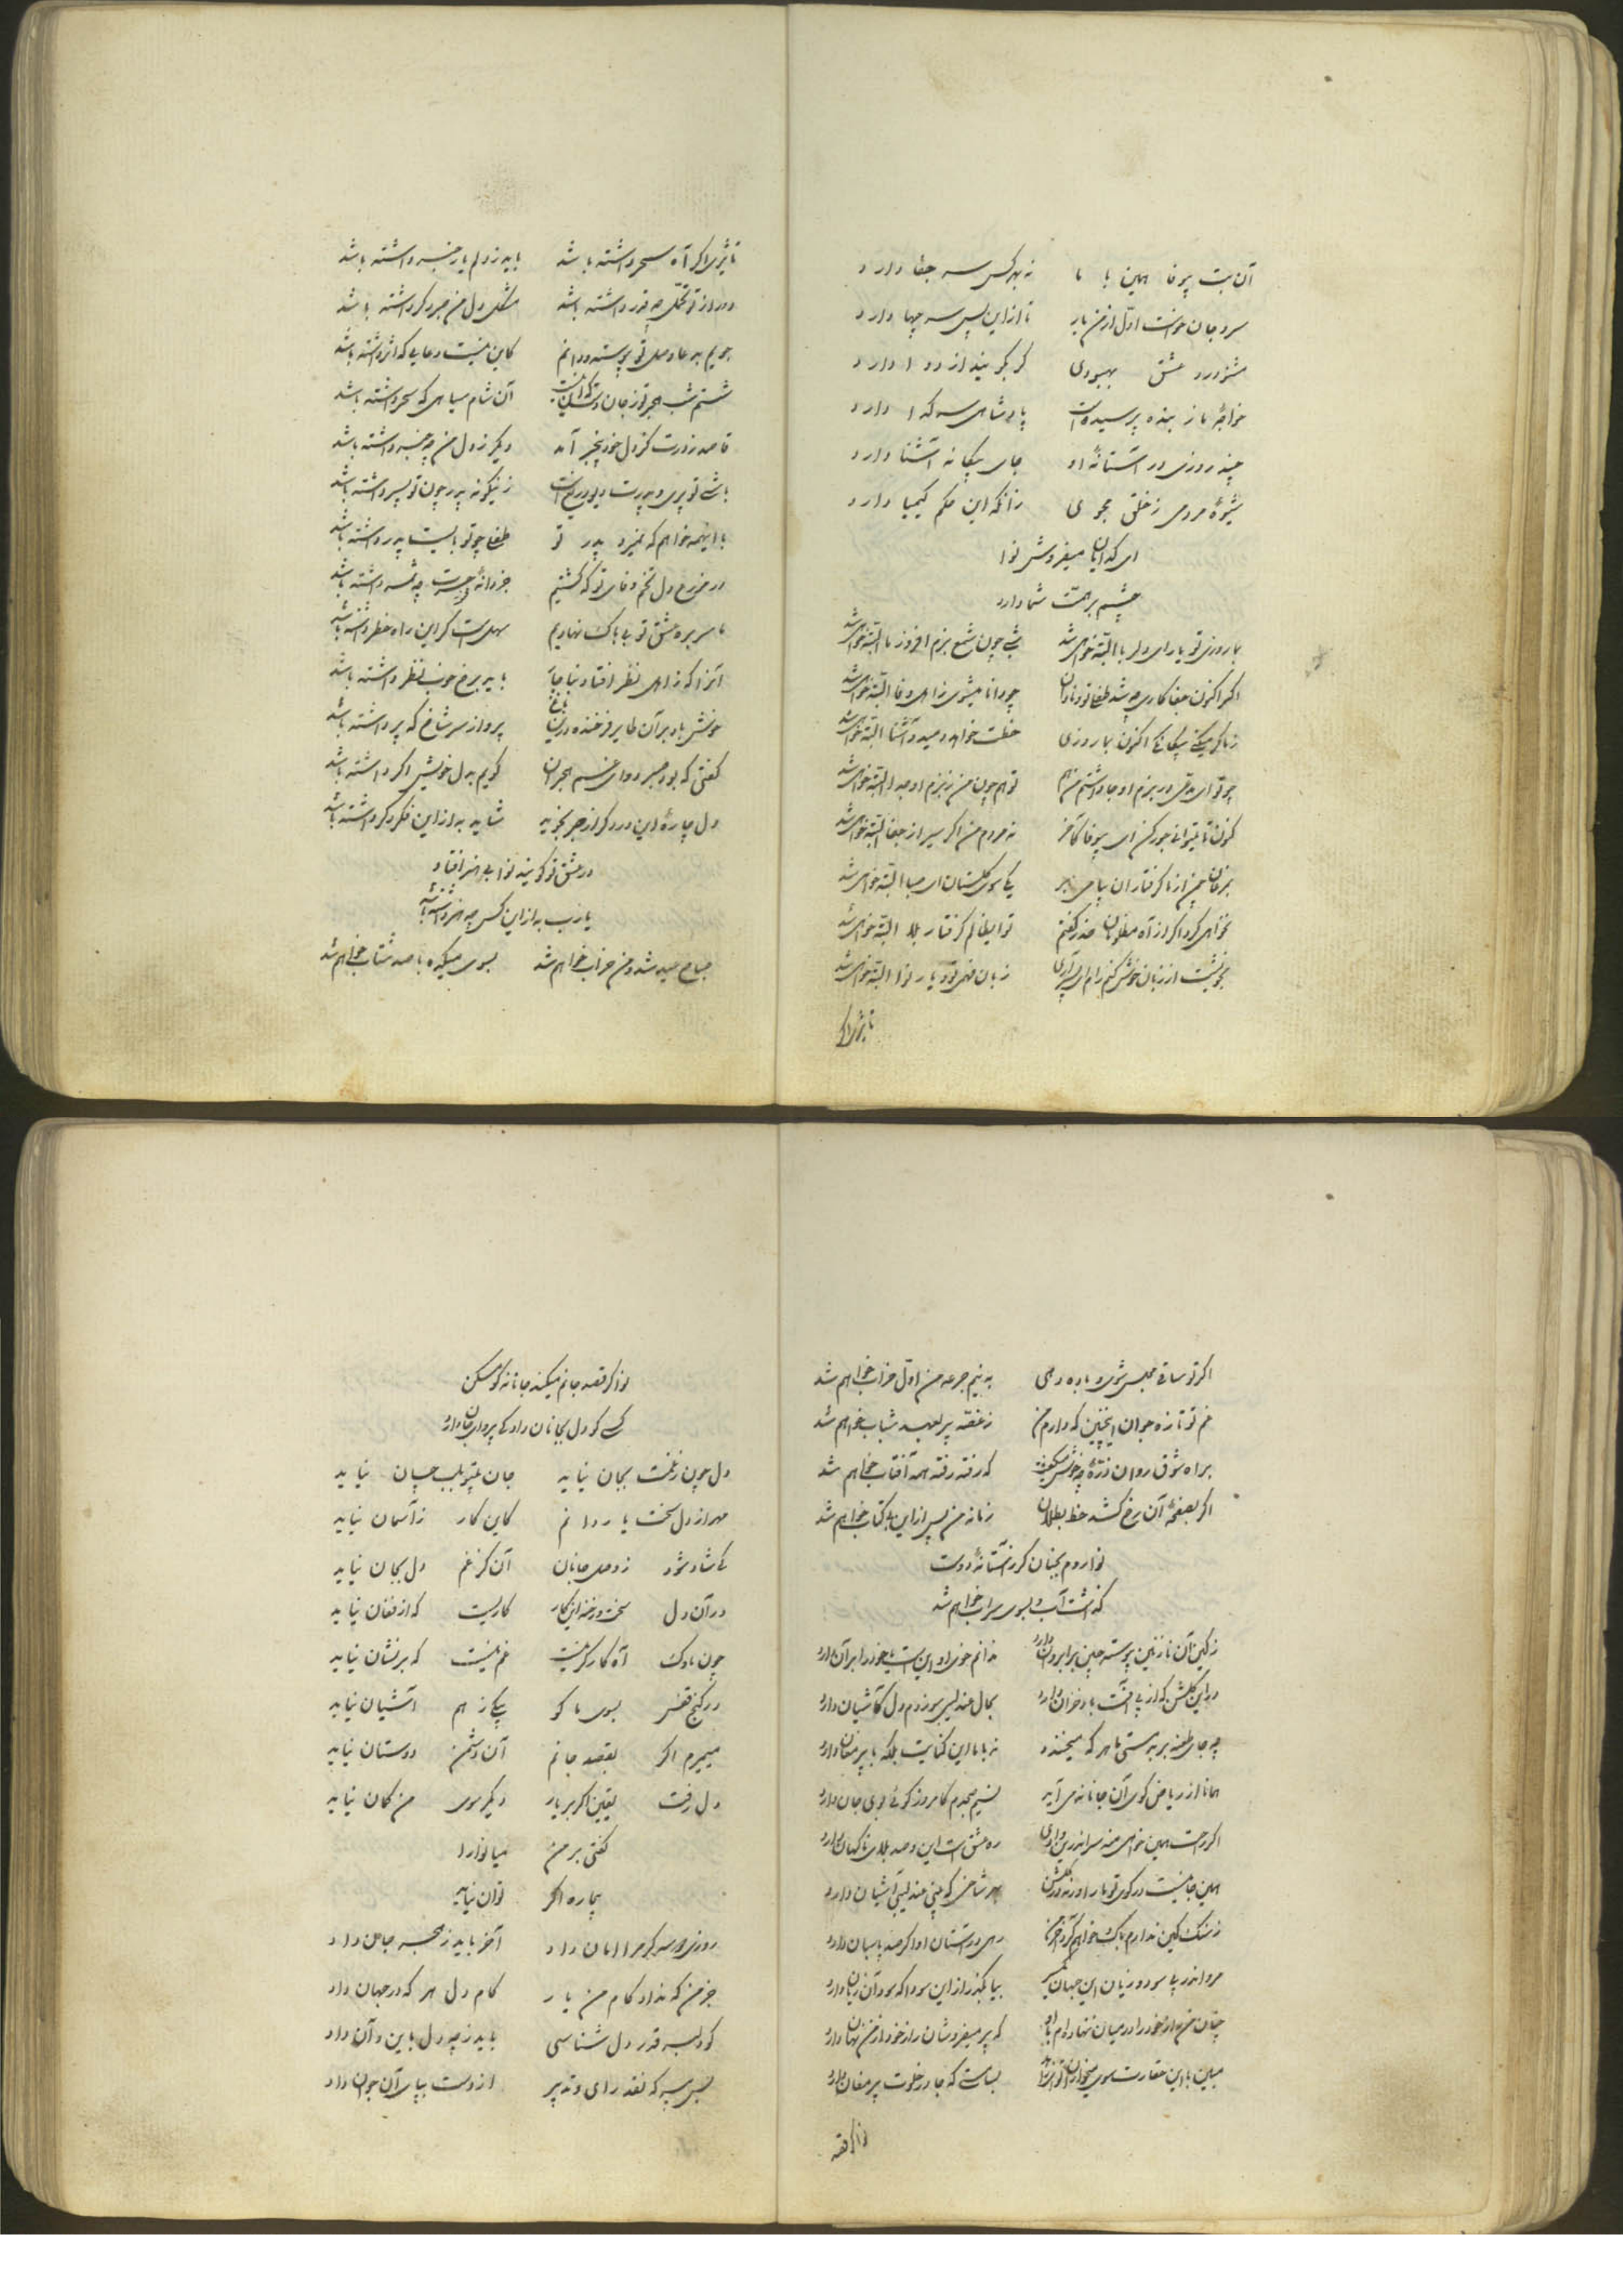 آن بت بیوفا همین با ما نه بهر کس سر جفا دارد
سر و جان خواست اول از من یار تا از این پس سر چها دارد
مشنو درد عشق بهبودی گر بگویند از دوا دارد
خواجهٔ ما ز بنده پرسیده است پادشاهی سر گدا دارد
چند روزی در آستانهٔ او جای بیگانه آشنا دارد
شیوهٔ مردمی ز خلق مجوی زانکه این حکم کیمیا دارد
ای گدایان میفروش نوا
چشم بر همت شما دارد
بما روزی تو یار ای دلربا البته خواهی شد شبی چون شمع بزم افروز ما البته خواهی شد
اگر اکنون جفا کاری چه شد طفلی تو و نادان چو دانا میشوی ز اهل وفا البته خواهی شد
ز ما گر میکنی بیگانگی اکنون بما روزی خطت خواهد دمید و آشنا البته خواهی شد
چو تو ای مدعی در بزم او جا داشتم من هم تو هم چون من ز بزم او جدا البته خواهی شد
کنون تا میتوانی جور کن ای بیوفا کآخر نه مردم من اگر سیر از جفا البته خواهی شد
بمرغان چمن از ما گرفتاران پیامی بر یکی سوی گلستان ای صبا البته خواهی شد
نخواهی کرد اگر از آه مظلومان حذر گفتم تو ایظالم گرفتار بلا البته خواهی شد
بخویشت از زبان خوش کنم رام ای پسر آری زبان فهمی تو و یار نوا البته خواهی شد
تاثیری اگر
تاثیری اگر آه سحر داشته باشد باید ز دلم یار خبر داشته باشد
دور از تو تحمل چه قدر داشته باشد مشکل دل من صبر دگر داشته باشد
جویم بدعا وصل تو پیوسته و دانم کاین نیست دعایی که اثر داشته باشد
شستم شب هجر تو ز جان دست که دانست آن شام سیاهی که سحر داشته باشد
قاصد ز درت کز دل خود بیخبر آمد دیگر ز دل من چه خبر داشته باشد
باشی تو پری و پدرت دیو دریغ است زینگونه پدر چون تو پسر داشته باشد
با اینهمه خواهم که نمیرد پدر تو طفلی چو تو بایست پدر داشته باشد
در مزرع دل تخم وفای تو که کشتیم جز دانهٔ حسرت چه ثمر داشته باشد
ما سر بره عشق تو بی باک نهادیم سهلست گر این راه خطر داشته باشد
آنرا که ز اهل نظر افتاد نباید باید برخ خوب نظر داشته باشد
خوش باد بر آن طایر فرخنده در این باغ پرواز سر شاخ که پر داشته باشد
گفتی که بود صبر دوای غم هجران گویم بدل خویش اگر داشته باشد
دل چارهٔ این درد گر از صبر نجوید شاید به از این فکر دگر داشته باشد
در عشق تو گویند نوا بی هنر افتاد
یا رب به از این کس چه هنر داشته باشد
صباح عید شد و من خراب خواهم شد بسوی میکده با صد شتاب خواهم شد
اگر تو ساقی مجلس شوی و باده دهی به نیم جرعه من اول خراب خواهم شد
غم تو تازه جوان اینچنین که دارم من ز غصه پیر بعهد شباب خواهم شد
براه شوق روان ذرهٔ چه خوش میگفت که رفته رفته همه آفتاب خواهم شد
اگر بصفحهٔ آن رخ کشد خط بطلان زمانه من پس از این بی کتاب خواهم شد
نوا روم بجنان گر ز آستانهٔ دوست
گذشت آب و بسوی سراب خواهم شد
ز کین آن نازنین پیوسته چین بر ابروان دارد ندانم خوی او این است یا خود را بر آن دارد
در این گلشن که از پی آفت باد خزان دارد بحال عندلیبی سوزدم دل کآشیان دارد
چه جای طعنه بر بدمستی ما هر که میخندد نه با ما این کنایت بلکه با پیر مغان دارد
همانا از ریاض کوی آن جانانه می آید نسیم صبحدم کامروز گوئی بوی جان دارد
اگر راحت همین خواهی منه سر اندرین وادی ره عشق است این و صد بلای ناگهان دارد
همین جا نیست در کوی تو ما را ورنه در گلشن بهر شاخی که بینی عندلیبی آشیان دارد
ز سنگ کین ندارم باک خواهم کرد آخر من رهی در آستان او اگر صد پاسبان دارد
مرو اندر پی سود و زیان این جهان بیا بگذر از این سودا که سود آن زیان دارد
چنان من راز خود را در میان ننهاده ام با او که پیر میفروشان راز خود از من نهان دارد
مبین با این حقارت سوی میخواران بسا مستی که جا در خلوت پیر مغان دارد
نوا گر قصد
نوا گر قصد جانم میکند جانانه گو میکن
کسی کو دل بجانان داد کی پروای جان دارد
دل چون ز غمت بجان نیاید جان بیتو بلب چسان نیاید
مهر از دل سخت یار دانم کاین کار ز آسمان نیاید
کی شاد شود ز وصل جانان آن کز غم دل بجان نیاید
در آن دل سخت رخنه این کار کاریست که از فغان نیاید
چون ناوک آه کارگر نیست غم نیست که بر نشان نیاید
در کنج قفس بسوی ما کو پیکی ز هم آشیان نیاید
میمیرم اگر بقصد جانم آن دشمن دوستان نیاید
دل رفت یقین اگر بر یار دیگر سوی من گمان نیاید
گفتی بر من میا نوا را
بیچاره اگر توان نیاید
روزی دو سه گر مرا امان داد آخر باید ز هجر جان داد
جز من که نداد کام من یار کام دل هر که در جهان داد
کو دلبر قدر دل شناسی باید ز چه دل باین و آن داد
بس پیر که نقد رای و تدبیر از دست بپای آن جوان داد